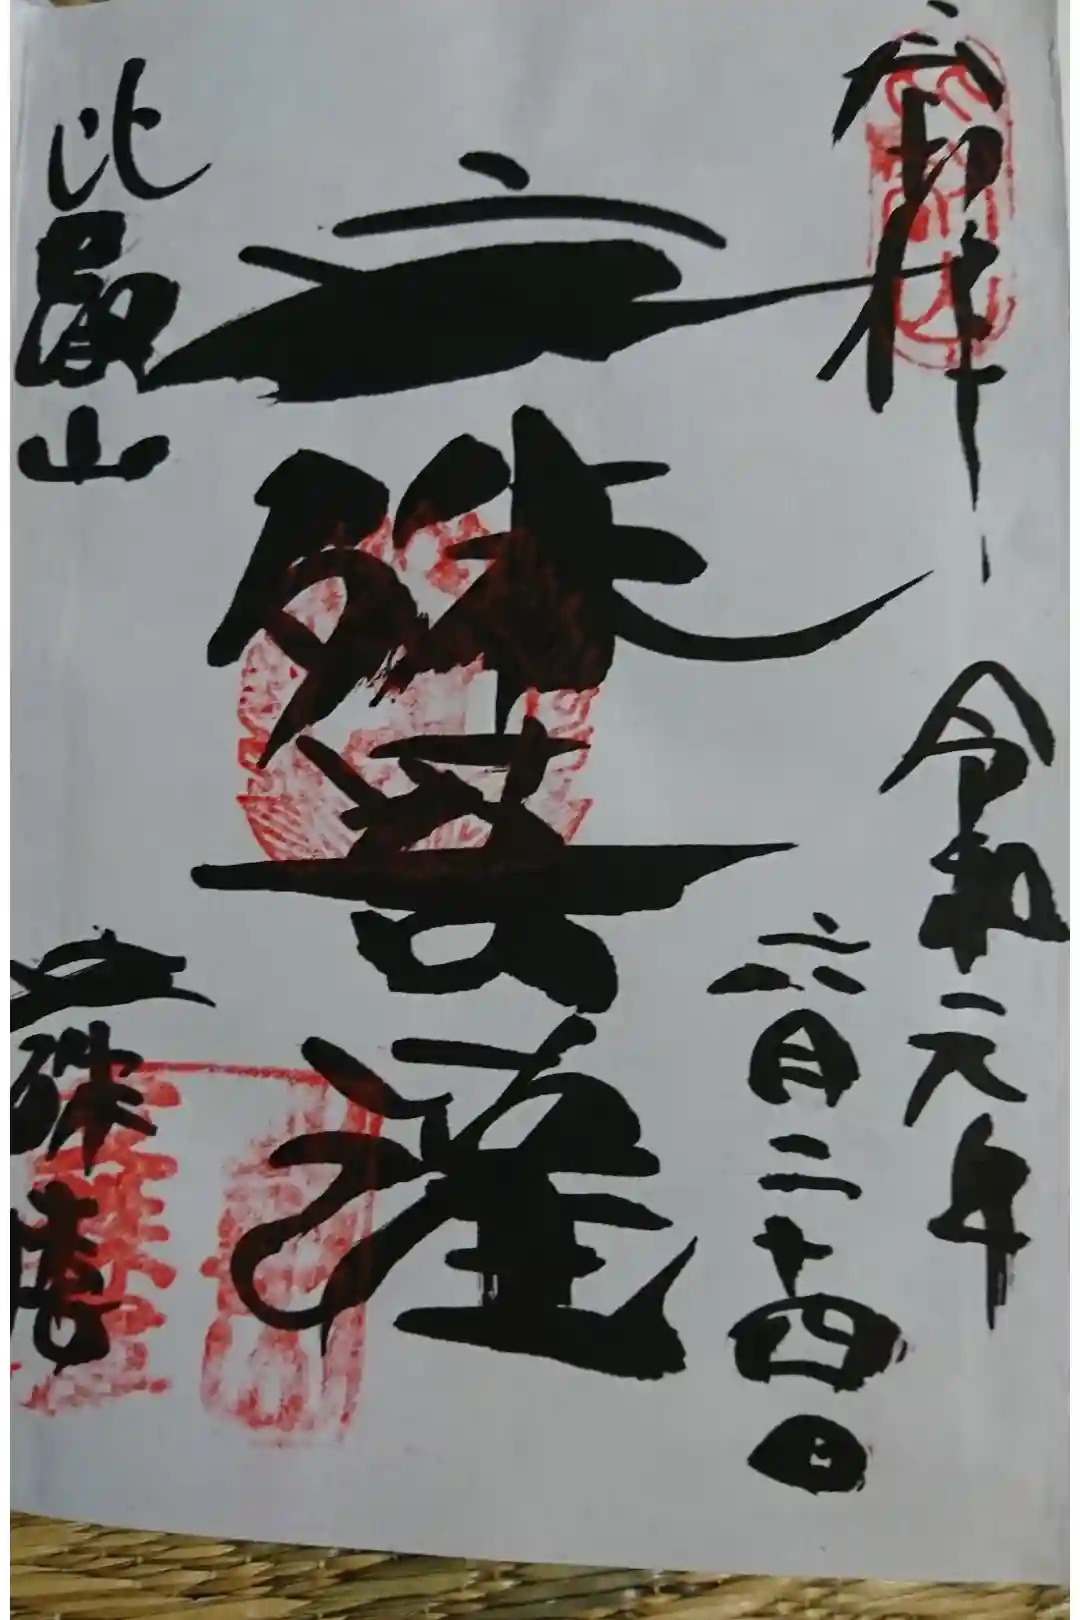 奉拝
令和元年
六月二十四日
文殊菩薩
比叡山
文殊楼